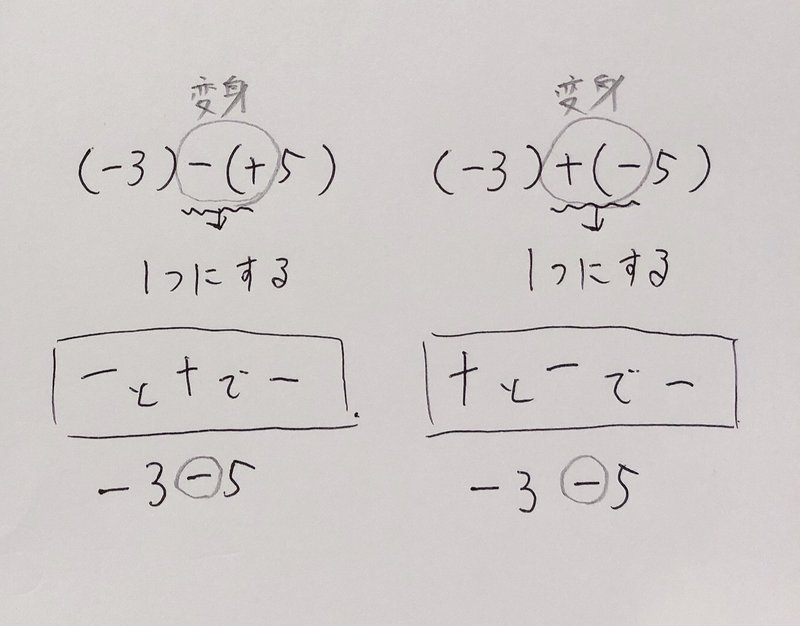 変身
(-3)-(+5)
1つにする
-と+で-
-3-5
変身
(-3)+(-5)
1つにする
+と-で-
-3-5